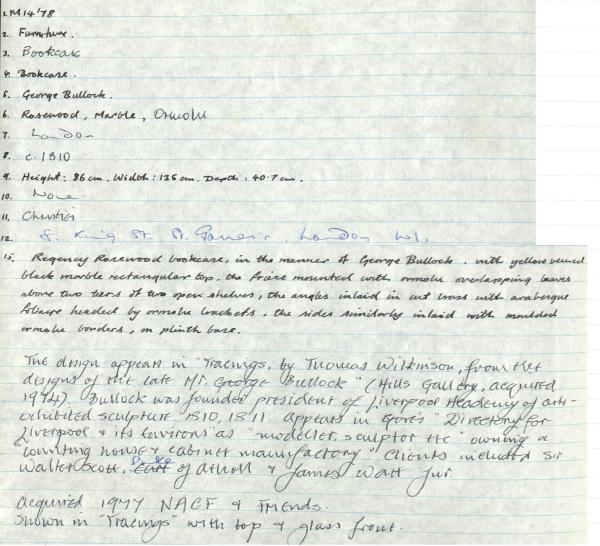 1. M14'78
2. Furniture.
3. Bookcase
4. Bookcase.
5. George Bullock.
6. Rosewood, Marble, Ormolu
7. London
8. c. 1810
9. Height: 86 cm. Width: 135 cm. Depth: 40.7 cm.
10. None.
11. Christies
12. 8. King St. St. James's, London W1.
13. Regency Rosewood bookcase, in the manner of George Bullock. with yellow veined
black marble rectangular top, the frieze mounted with ormolu overlapping leaves
above two tiers of two open shelves, the angles inlaid in cut brass with arabesque
foliage headed by ormolu brackets, the sides similarly inlaid with moulded
ormolu borders, on plinth base.
The design appears in "Tracings, by Thomas Wilkinson, from the
designs of the late Mr. George Bullock" (Hills Gallery, acquired
1974). Bullock was founder president of Liverpool Academy of arts -
exhibited sculpture 1810, 1811. Appears in Gores "Directory for
Liverpool & its Environs as "modeller, sculptor etc owning a
counting house & cabinet manufactory" Clients included Sir
Walter Scott, Duke of Atholl & James Watt Jnr.
Acquired 1977 NACF & Friends.
Shown in "Tracings" with top & glass front.